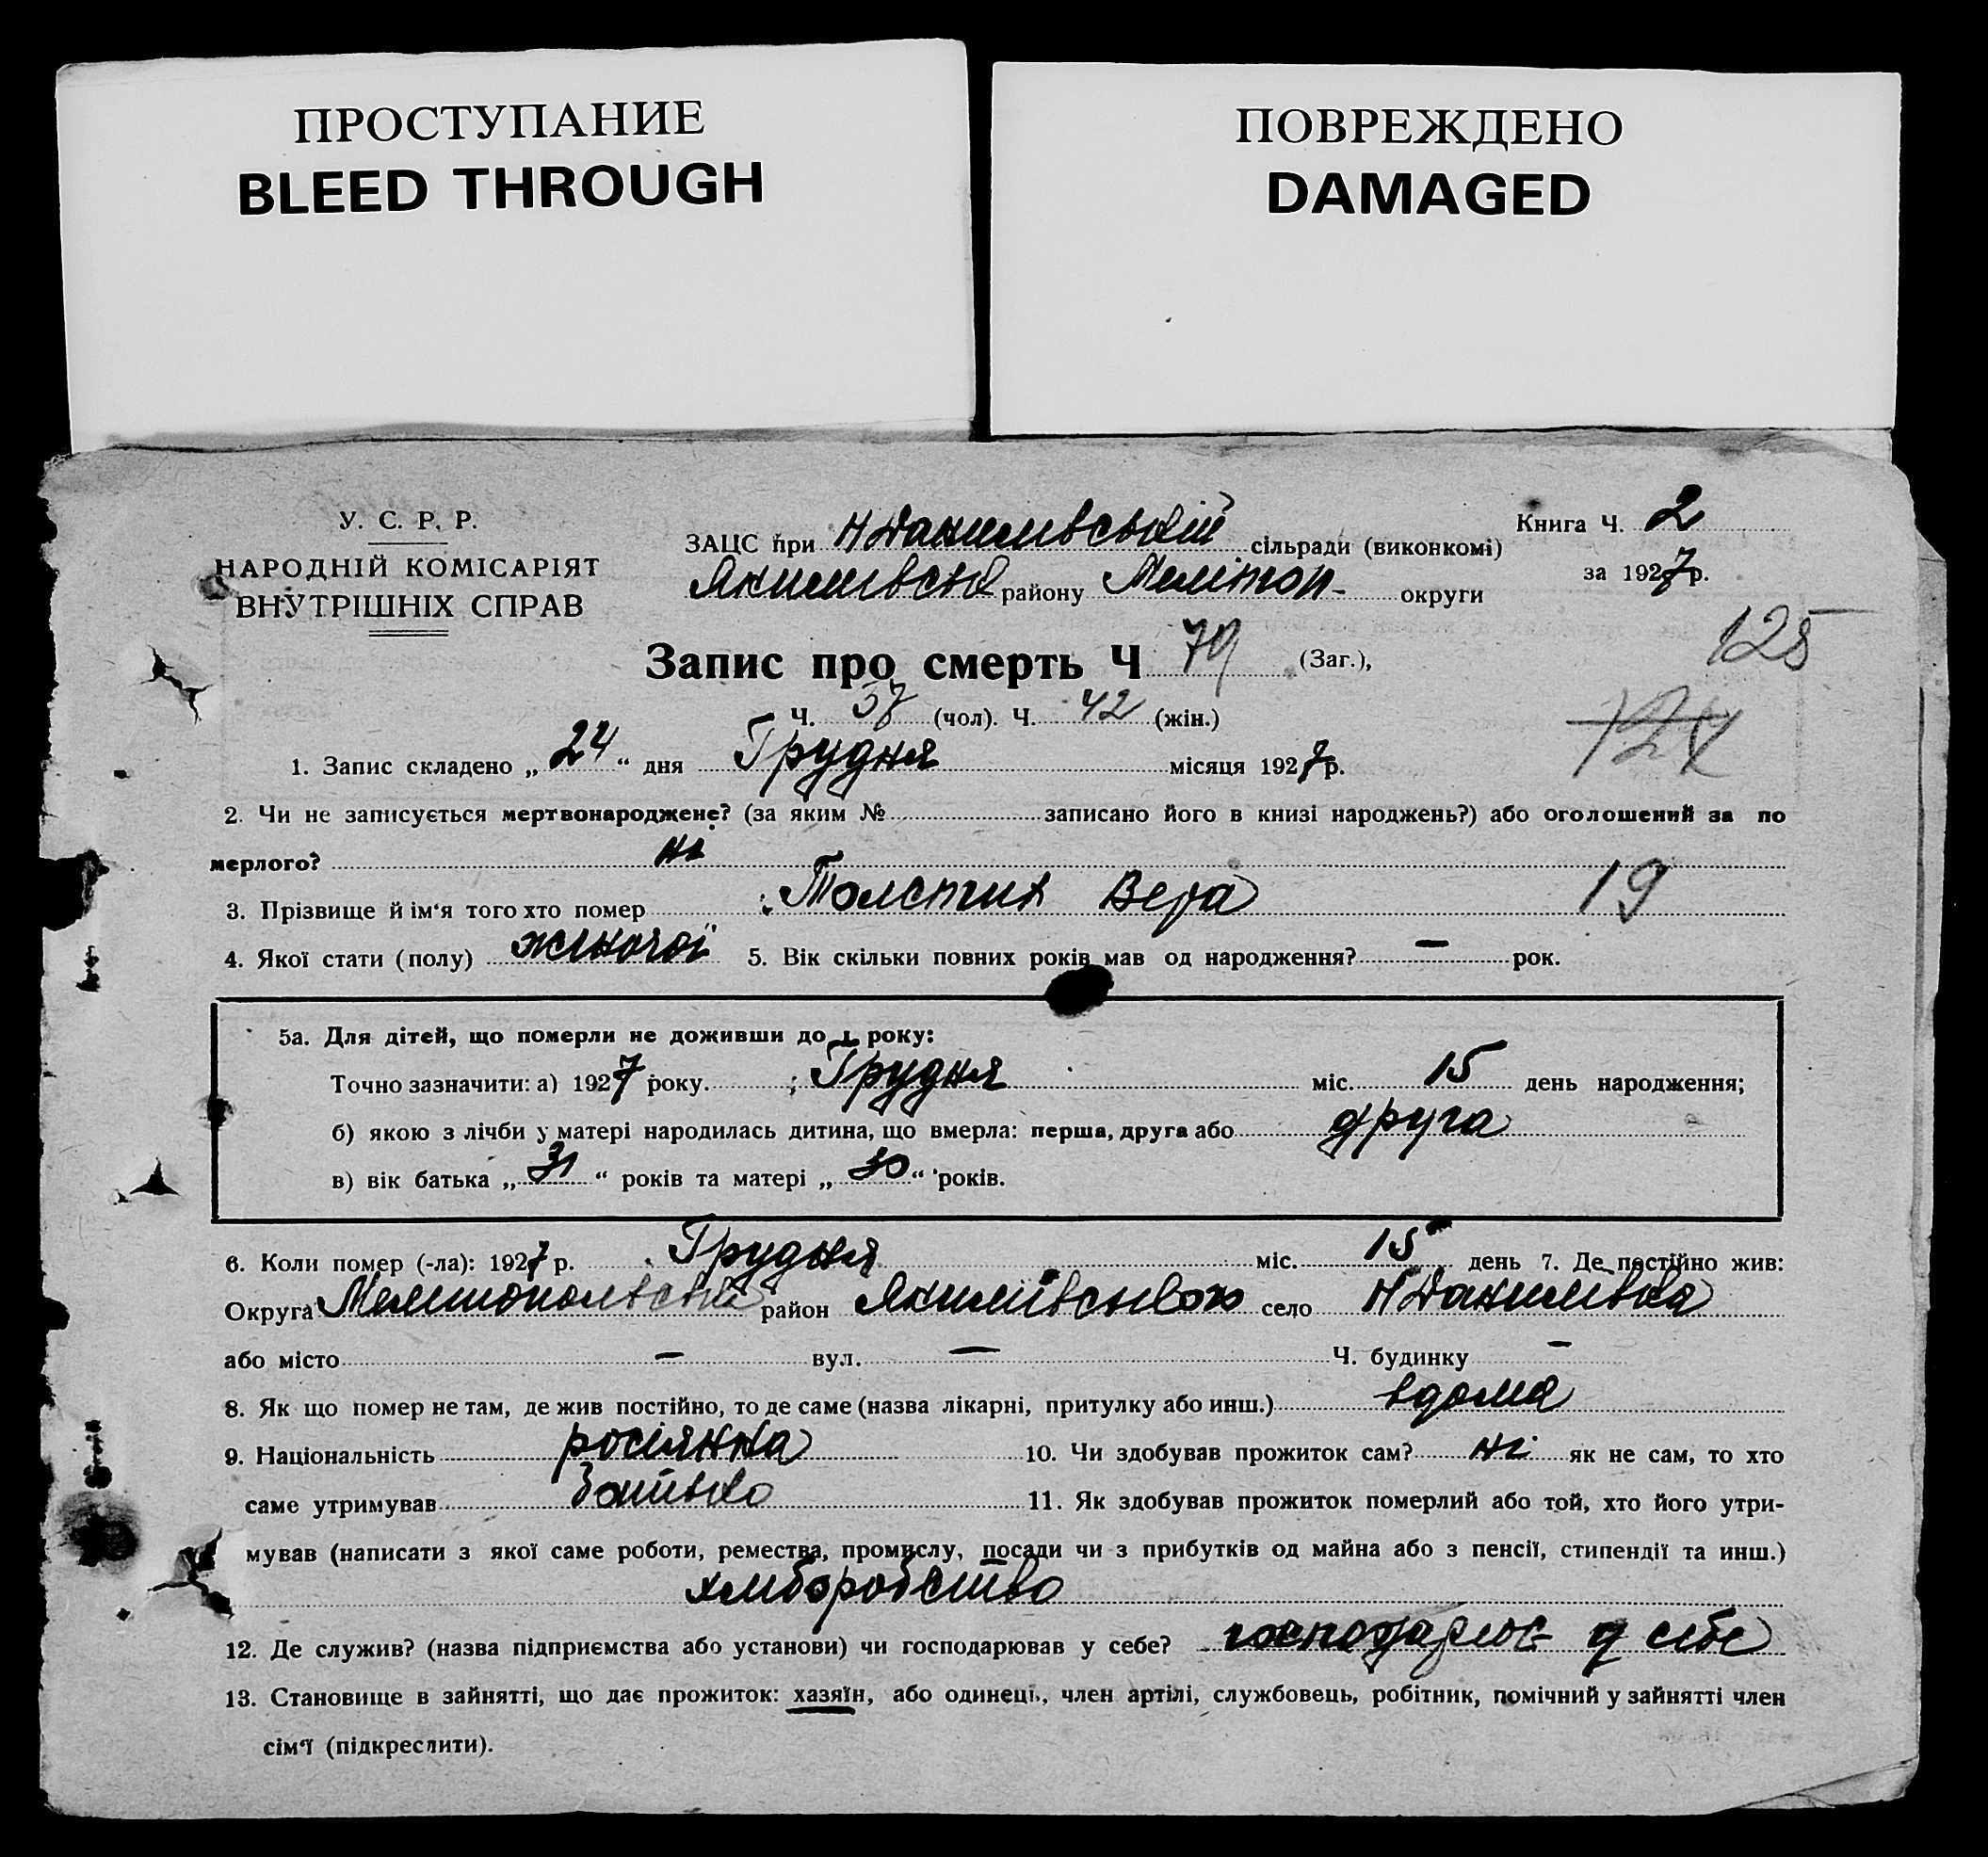 ПРОСТУПАНИЕ
BLEED THROUGH
ПОВРЕЖДЕНО
DAMAGED
У. С. Р. Р.
НАРОДНІЙ КОМІСАРІЯТ
ВНУТРІШНІХ СПРАВ
ЗАЦС при Н Данилівській сільради (виконкомі)
Якимівськ району Мелітоп- округи
Книга Ч. 2
за 1927 р.
125
124
Запис про смерть Ч 79 (Заг.),
Ч. 37 (чол). Ч. 42 (жін.)
1. Запис складено „ 24 “ дня Грудня місяця 1927 р.
2. Чи не записується мертвонароджене? (за яким № записано його в книзі народжень?) або оголошений за по
мерлого? ні
3. Прізвище й ім‘я того хто помер Толстих Вера 19
4. Якої стати (полу) жіночої 5. Вік скільки повних років мав од народження? — рок.
5а. Для дітей, що померли не доживши до 1 року:
Точно зазначити: а) 1927 року. Грудня міс. 15 день народження;
б) якою з лічби у матері народилась дитина, що вмерла: перша, друга або друга
в) вік батька „ 31 “ років та матері „ 30 “ років.
6. Коли помер (-ла): 1927 р. Грудня міс. 15 день 7. Де постійно жив:
Округа Мелітопольська район Якимівського село Н Данилівка
або місто — вул. — Ч. будинку —
8. Як що помер не там, де жив постійно, то де саме (назва лікарні, притулку або инш.) вдома
9. Національність росіянка 10. Чи здобував прожиток сам? ні як не сам, то хто
саме утримував батько 11. Як здобував прожиток померлий або той, хто його утри-
мував (написати з якої саме роботи, ремества, промислу, посади чи з прибутків од майна або з пенсії, стипендії та инш.)
хліборобство
12. Де служив? (назва підприємства або установи) чи господарював у себе? господарює у себе
13. Становище в зайнятті, що дає прожиток: хазяїн, або одинець, член артілі, службовець, робітник, помічний у зайнятті член
сім‘ї (підкреслити).